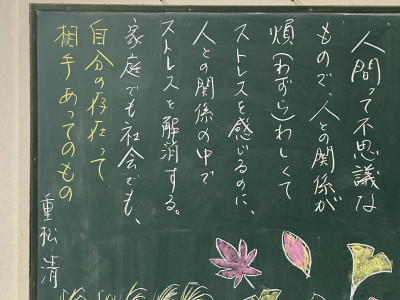 人間って不思議な
もので、人との関係が
煩(わずら)わしくて
ストレスを感じるのに、
人との関係の中で
ストレスを解消する。
家庭でも社会でも、
自分の存在って
相手あってのもの
重松清